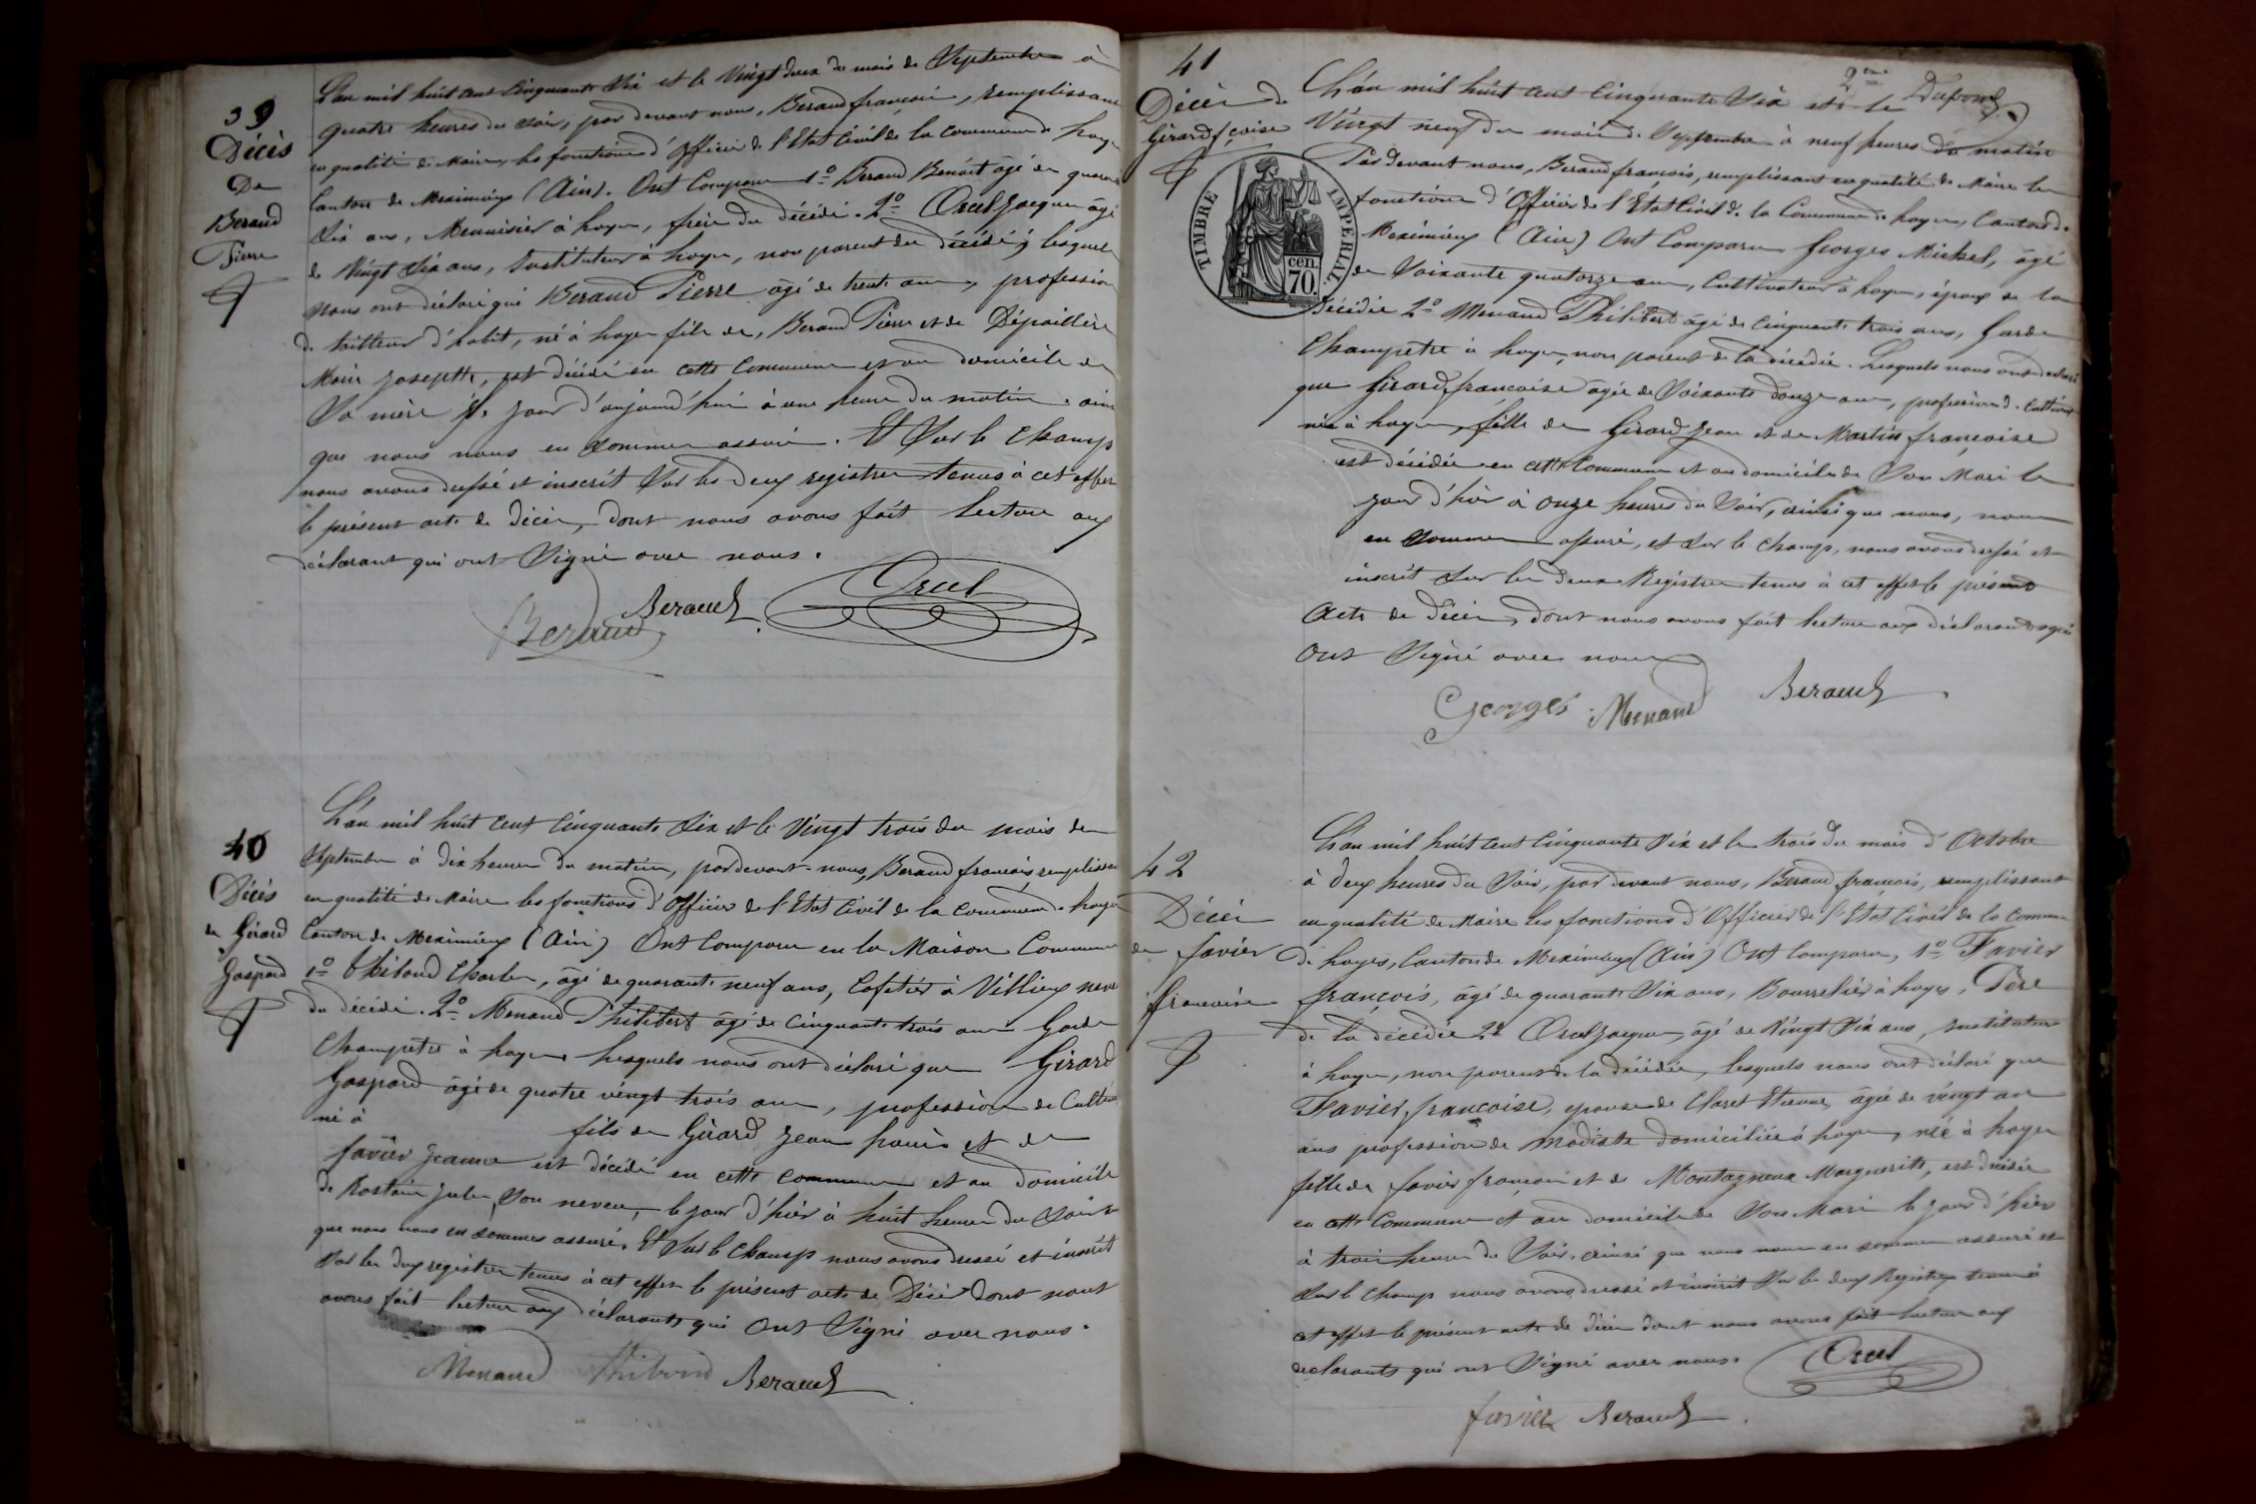 39
Décès
De
Beraud
Pierre
L'an mil huit cent Cinquante Six et le Vingt deux du mois de Septembre à
quatre heures du soir, par devant nous, Beraud françois, remplissant
en qualité de Maire les fonctions d'officier de l'Etat Civil de la Commune de Loyes
Canton de Meximieux (Ain). Ont Comparu 1º Beraud Benoit âgé de quarante
Six ans, Menuisier à Loyes, frère du décédé. 2º Orcel Jacques âgé
de Vingt Six ans, Instituteur à Loyes, non parent du décédé; lesquels
Nous ont déclaré que Beraud Pierre âgé de trente ans, profession
de tailleur d'habit, né à Loyes fils de, Beraud Pierre et de Dépaillère
Marie Josephte, est décédé en cette Commune et au domicile de
Sa mère le Jour d'aujourd'hui à une heure du matin. ainsi
que nous nous en sommes assuré. Et Sur le Champ
nous avons dressé et inscrit Sur les deux registres tenus à cet effet
le présent acte de Décès, dont nous avons fait lecture aux
déclarant qui ont Signé avec nous.
Beraud Beraud Orcel
40
Décès
de Girard
Gaspard
L'an mil huit cent Cinquante Six et le Vingt trois du mois de
Septembre à dix heures du matin, par devant nous, Beraud francois remplissant
en qualité de Maire les fonctions d'Officier de l'Etat Civil de la Commune de Loyes
Canton de Meximieux (Ain) Ont Comparu en la Maison Commune
1º Thiboud Charles, âgé de quarante neuf ans, Cafetier à Villieux neveu
du décédé. 2º Menand Philibert âgé de Cinquante trois ans Garde
Champetre à Loyes lesquels nous ont déclaré que Girard
Gaspard âgé de quatre vingt trois ans, profession de Cultiv
né à fils de Girard Jean Louis et de
favier Jeanne est décédé en cette commune et au domicile
de Rostain Jules, Son neveu, le Jour d'hier à huit heures du Soir
que nous nous en sommes assuré. Et Sur le Champ nous avons dressé et inscrit
Sur les deux registres tenus à cet effet le présent acte de Décès dont nous
avons fait lecture aux déclarants qui Ont Signé avec nous.
Menand Thiboud Beraud
41
Décès de
Girard fçoise
TIMBRE IMPERIAL
70 cen.
2me
Dufour
L'an mil huit cent Cinquante Six et le
Vingt neuf du mois de Septembre à neuf heures du matin
Par devant nous, Beraud françois, remplissant en qualité de Maire les
fonctions d'Officier de l'Etat Civil de la Commune de Loyes, Canton de
Meximieux (Ain) Ont Comparu Georges Michel, âgé
de Soixante quatorze ans, Cultivateur à Loyes, époux de la
décédée 2º Menand Philibert âgé de Cinquante trois ans, Garde
Champetre à Loyes, non parent de la décédée. Lesquels nous ont déclaré
que Girard francoise âgée de Soixante douze ans, profession de Cultivat
née à Loyes, fille de Girard Jean et de Martin francoise
est décédée en cette Commune et au domicile de Son Mari le
Jour d'hier à onze heures du Soir, ainsi que nous, nous
en Sommes assuré, et Sur le Champ, nous avons dressé et
inscrit Sur les deux Registres tenus à cet effet le présent
Acte de Décès, dont nous avons fait lecture aux déclarants qui
Ont Signé avec nous
Georges Menand Beraud
42
Décès
de favier
francoise
L'an mil huit cent Cinquante Six et le trois du mois d'Octobre
à deux heures du Soir, par devant nous, Beraud françois, remplissant
en qualité de Maire les fonctions d'Officier de l'Etat Civil de la Commune
de Loyes, Canton de Meximieux (Ain) Ont Comparu, 1º Favier
françois, âgé de quarante Six ans, Bourrelier à Loyes, Père
de la décédée 2º Orcel Jacques, âgé de Vingt Six ans, Instituteur
à Loyes, non parent de la décédée, lesquels nous ont déclaré que
Favier, francoise, epouse de Claret Etienne, âgée de vingt un
ans profession de Modiste domiciliée à Loyes, née à Loyes
fille de favier françois et de Montagneux Marguerite, est décédée
en cette Commune et au domicile de Son Mari le Jour d'hier
à trois heures du Soir, ainsi que nous nous en sommes assuré et
Sur le Champ nous avons dressé et inscrit Sur les deux Registres tenus à
cet effet le présent acte de Décès dont nous avons fait lecture aux
declarants qui ont Signé avec nous.
Orcel
favier Beraud